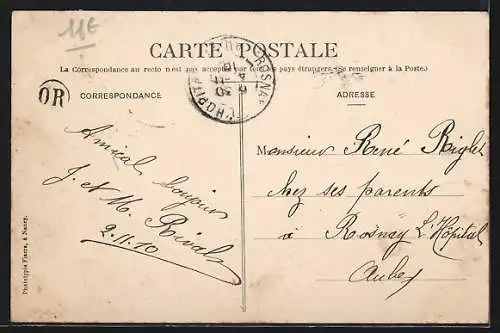 11€
CARTE POSTALE
La Correspondance au recto n'est pas acceptée par tous les pays étrangers. (Se renseigner à la Poste.)
OR
CORRESPONDANCE
ADRESSE
Amical bonjour
J. et M. Rivals
2.11.10
Monsieur René Riglet
chez ses parents
à Rosnay L'Hôpital
Aube
Phototypie Flacra, à Nancy.
ROSNAY L'HOPITAL